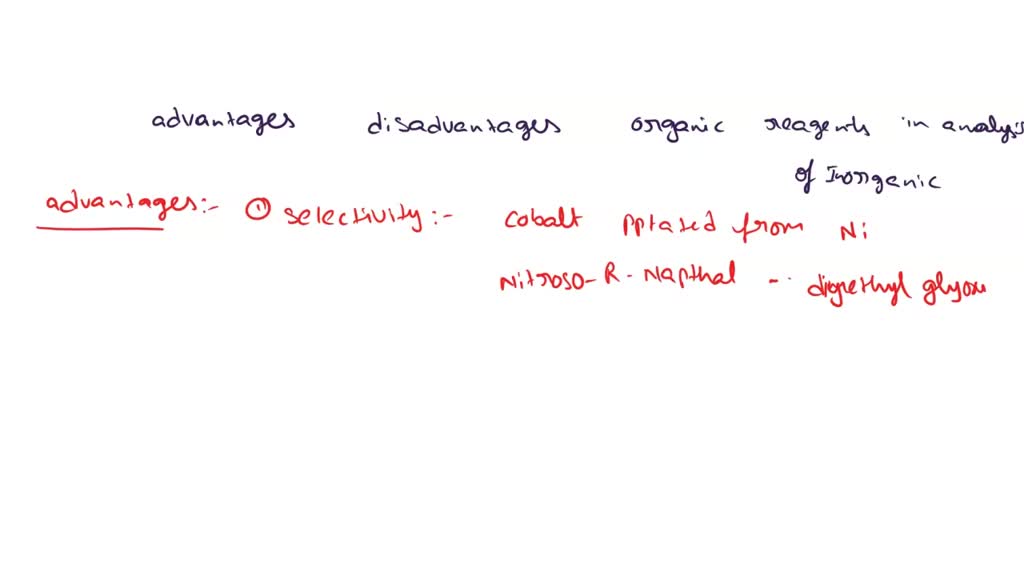 advantages disadvantages organic reagents in analysis
of Inorganic
advantages:- ① selectivity :- cobalt pptated from Ni
Nitroso-R-Napthal -- dimethyl glyox